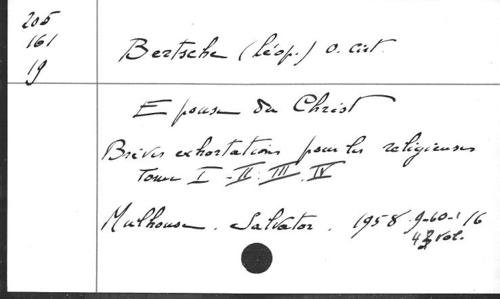 205
161
19
Bertsche (léop.) o. cist.
Epouse du Christ
Brèves exhortations pour les religieuses
Tome I - II - III - IV
Mulhouse. Salvator. 1958. 9-60-116
4 vol.